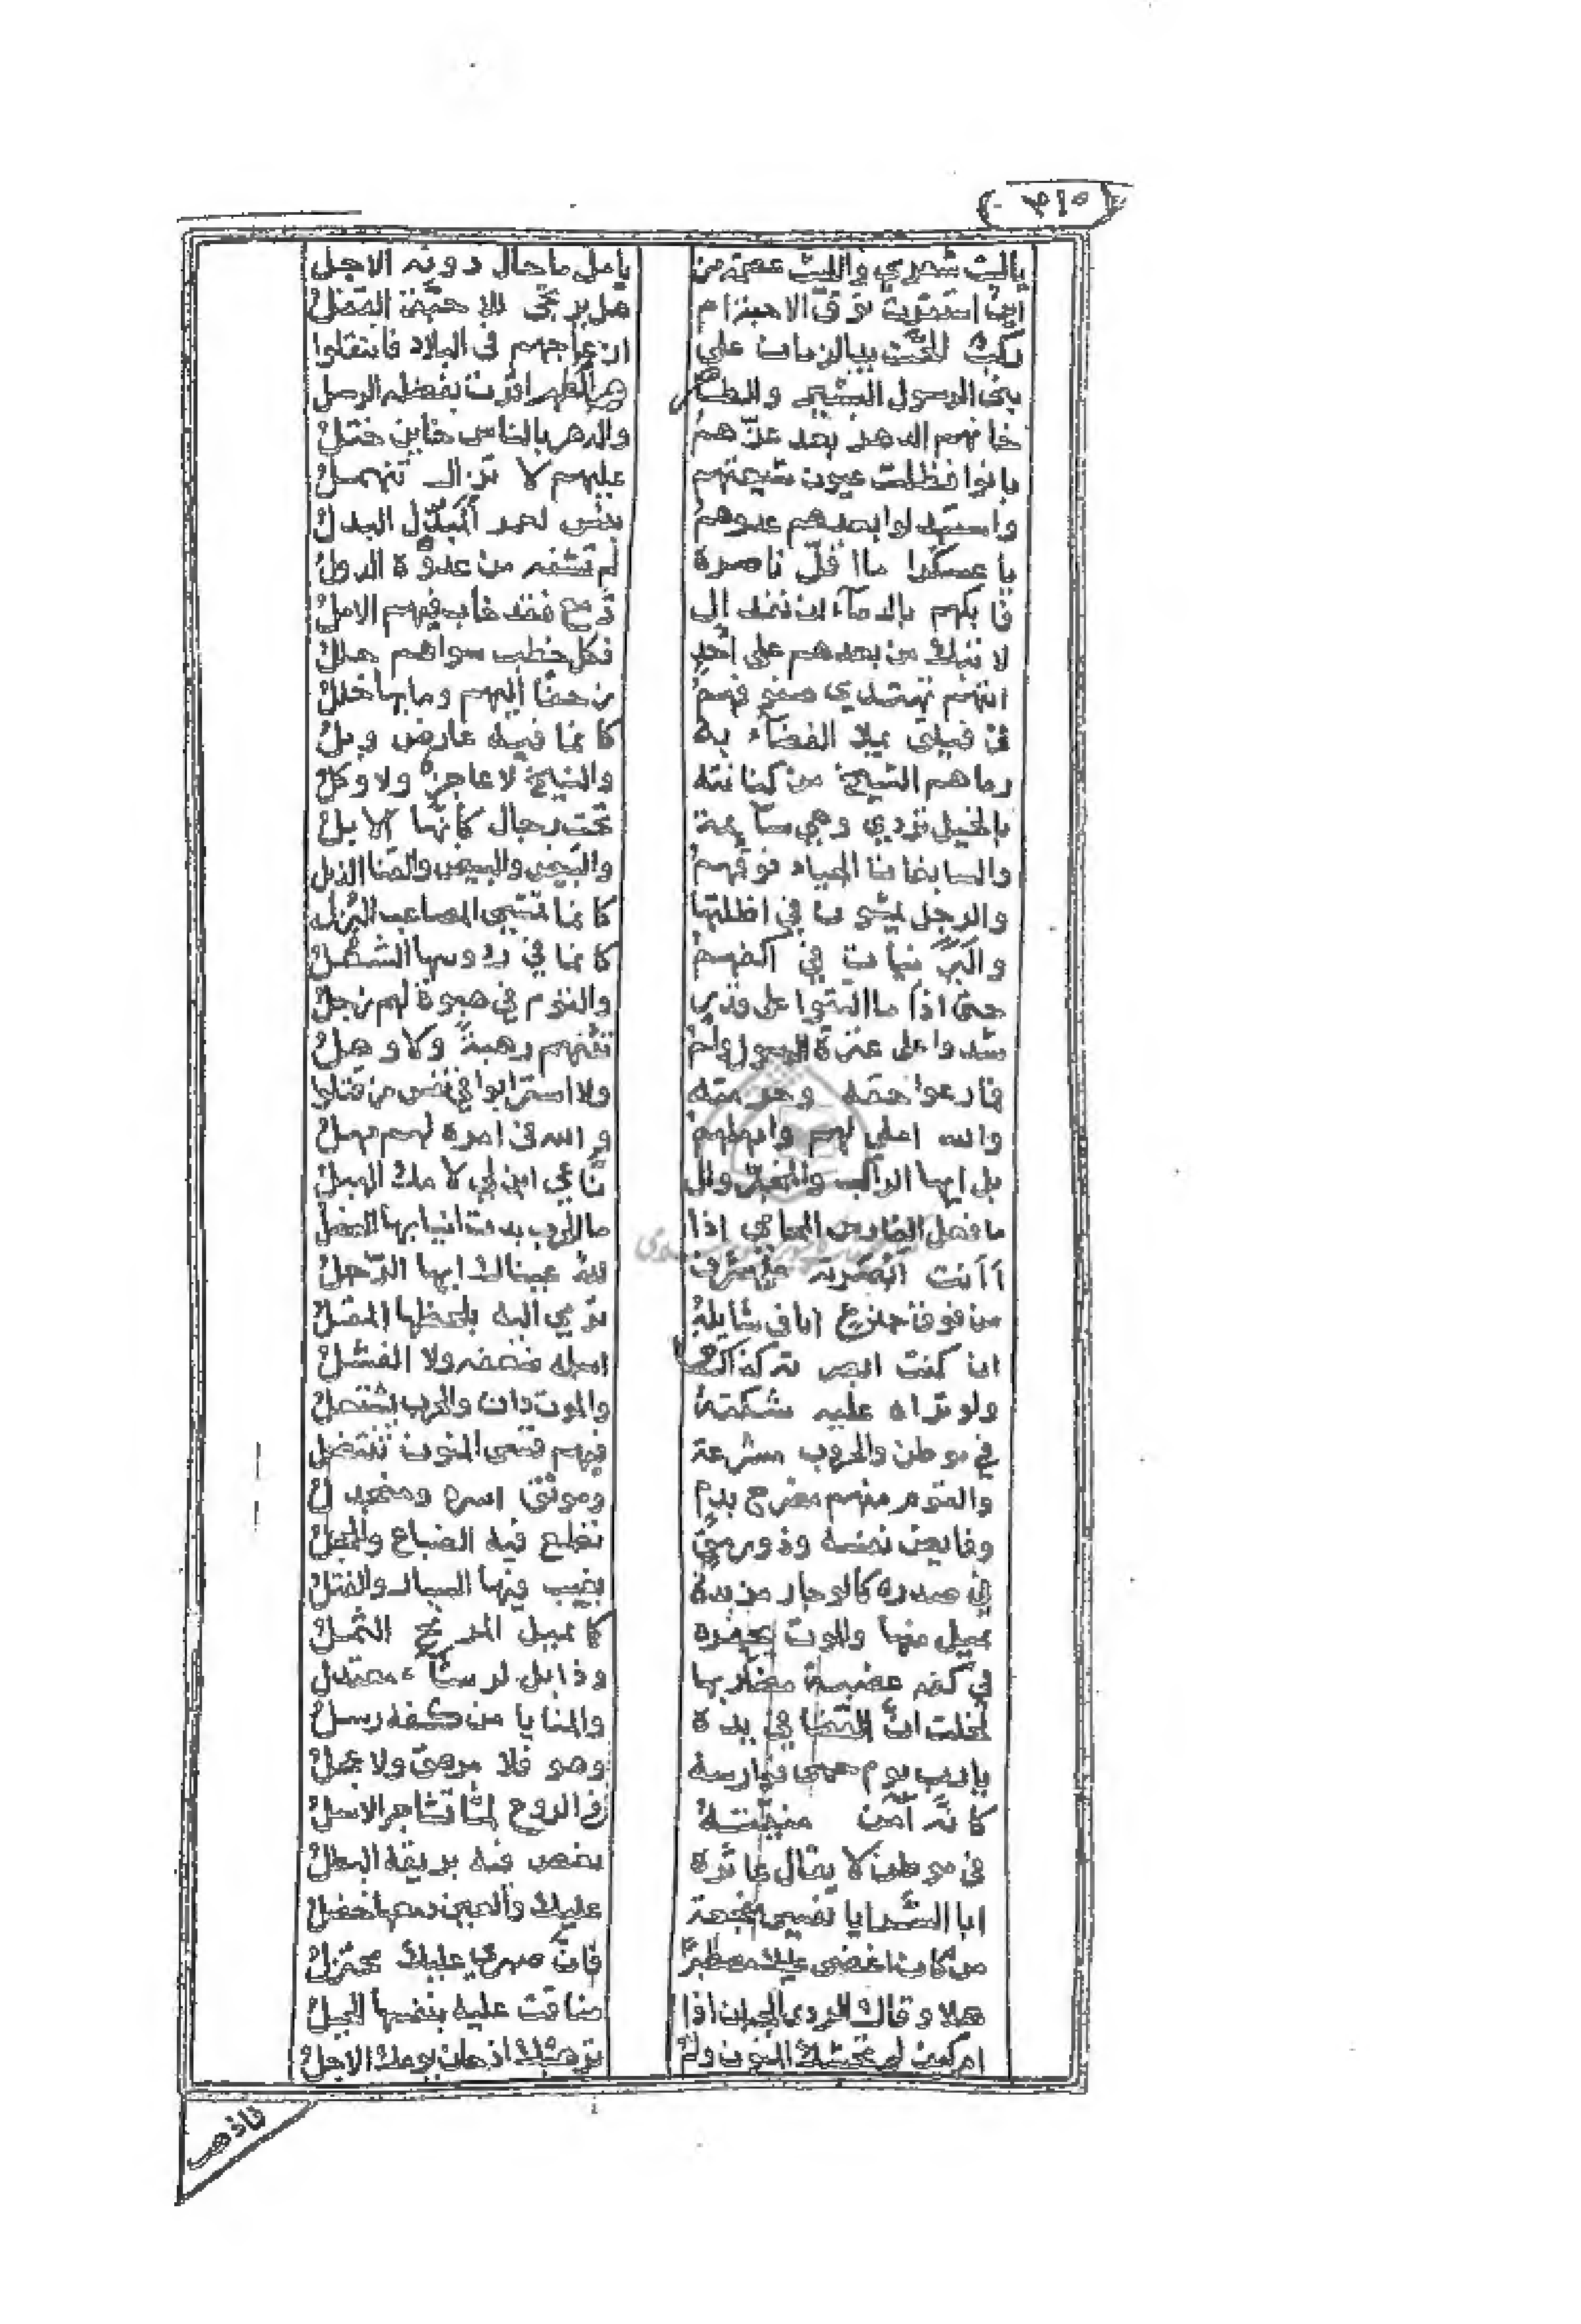 ياليت شعري والليت عصمة من يامل ما حال دونه الاجل
اين استقرت نوى الاحبة ام هل يرتجى للاحبة القفل
ركب الحت يدالزمان على ازعاجهم في البلاد فانتقلوا
بني الرسول البشير والطاهر الطهر اقرت بفضله الرسل
خانهم الدهر بعد عزهم والدهر بالناس خاين ختل
بانوا فظلت عيون شيعتهم عليهم لا تزال تنهمل
واستبدلوا بعدهم عدوهم بئس لعمر المبدل البدل
يا عسكرا ما اقل ناصره لم تشفه من عدوه الدول
فابكهم بالدماء ان نفد الدمع فقد خاب فيهم الامل
لا تبك من بعدهم على احد فكل خطب سواهم جلل
انهم تهتدي صفوفهم زحفا اليهم وما بها خلل
في فيلق يملا الفضاء به كانما فيه عارض وبل
رماهم الشيخ من كنانته والشيخ لا عاجز ولا وكل
بالخيل تردي وهي ساهمة تحت رجال كانها الابل
والسابغات الجياد فوقهم والبيض والبيض والقنا الذبل
والرجل يمشون في اظلتها كانما تمشي المصاعب البزل
واليزنيات في اكفهم كانما في رؤسها الشعل
حتى اذا ما التقوا على قدر والقوم في هبوة لهم زجل
شدوا على عترة الرسول ولم تثنهم رهبة ولا وهل
فما رعوا حقه وحرمته ولا استرابوا في نفس من قتلوا
والله املى لهم وامهلهم والله في امره لهم مهل
بل ايها الراكب والمغذ والناعي ابن لي لا مك الهبل
ما فعل الفارس المحامي اذا ما الحرب بدت انيابها العضل
اانت ابصرته على شرف لله عيناك ايها الرجل
من فوق جذع اناف شايلة ترمي اليه بلحظها المقل
ان كنت ابصرته كذاك فما اسلمه ضعفه ولا الفشل
ولو تراه عليه شكته والموت دان والحرب تشتعل
في موطن والحروب مشرعة فيهم قسي المنون تنتضل
والقوم منهم مضرج بدم وموثق اسره ومنجدل
وفايض نفسه وذو رمق تطمع فيه الضباع والحجل
في صدره كالوجار مزبدة يغيب فيها السبار والفتل
يميل منها والموت يحفزه كما يميل المرنح الثمل
في كفه عضبة مضاربها وذابل كالرشاء معتدل
لخلت ان القضا في يده والمنايا من كفه رسل
يا رب يوم حمى فوارسه وهو فلا مرهق ولا عجل
كانه امن منيته في الروع لما تشاجر الاسل
في موطن لا يقال عاثره يغص فيه بريقه البطل
ابا السرايا نفسي مفجعة عليك والعين دمعها خضل
من كان اغضى عليك مصطبرا فان صبري عليك مختزل
هلا وقاك الردى الجبان اذا ضاقت عليه بنفسه الحيل
ام كيف لم تخشك المنون ولم ترهبك اذ حان يومك الاجل
فاذهب